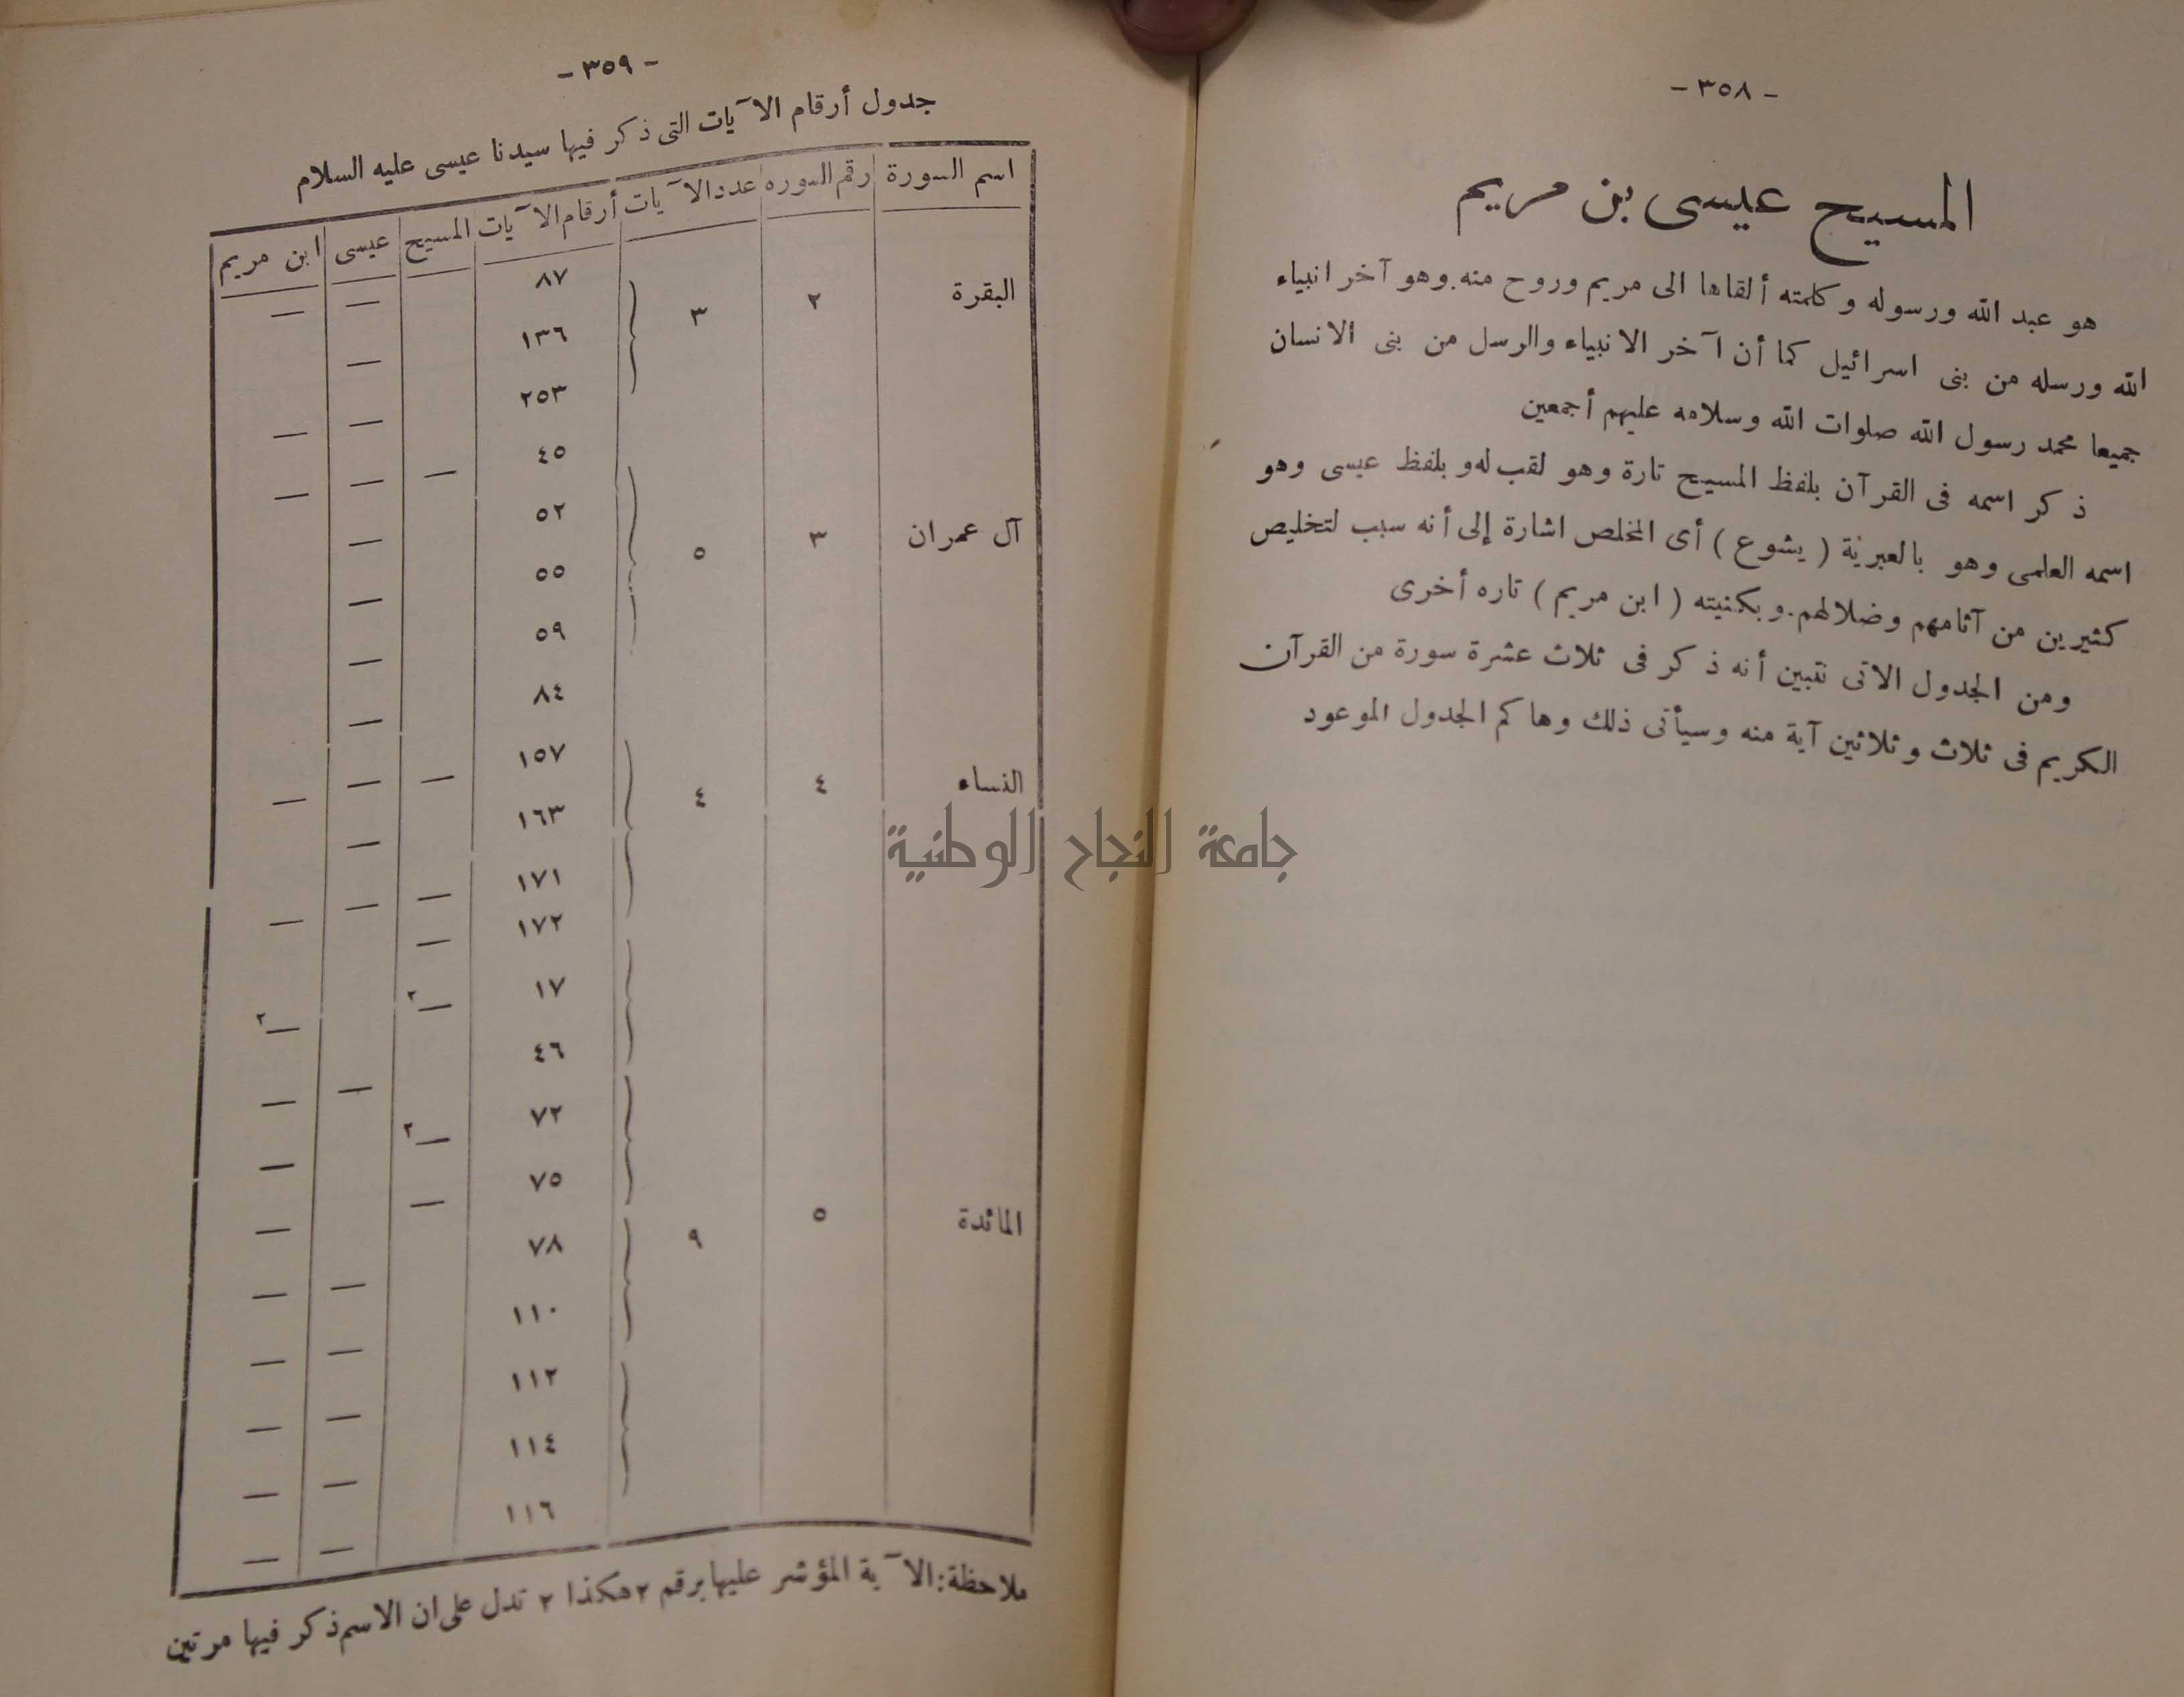 - ٣٥٨ -
المسيح عيسى بن مريم
هو عبد الله ورسوله وكلمته ألقاها الى مريم وروح منه. وهو آخر انبياء
الله ورسله من بنى اسرائيل كما أن آخر الانبياء والرسل من بنى الانسان
جميعا محمد رسول الله صلوات الله وسلامه عليهم أجمعين
ذكر اسمه فى القرآن بلفظ المسيح تارة وهو لقب له و بلفظ عيسى وهو
اسمه العلمى وهو بالعبرية ( يشوع ) أى المخلص اشارة إلى أنه سبب لتخليص
كثيرين من آثامهم وضلالهم. و بكنيته ( ابن مريم ) تاره أخرى
ومن الجدول الاتى تتبين أنه ذكر فى ثلاث عشرة سورة من القرآن
الكريم فى ثلاث وثلاثين آية منه وسيأتى ذلك وهاكم الجدول الموعود
- ٣٥٩ -
جدول أرقام الآيات التى ذكر فيها سيدنا عيسى عليه السلام
اسم السورة رقم السوره عدد الآيات أرقام الآيات المسيح عيسى ابن مريم
البقرة ٢ ٣ ٨٧ — —
١٣٦ —
٢٥٣ — —
٤٥ — — —
آل عمران ٣ ٥ ٥٢ —
٥٥ —
٥٩ —
٨٤ —
النساء ٤ ٤ ١٥٧ — — —
١٦٣ —
١٧١ — — —
١٧٢ —
١٧ —٢ —٢
٤٦ — —
٧٢ —٢ —
٧٥ — —
المائدة ٥ ٩ ٧٨ — —
١١٠ — —
١١٢ — —
١١٤ — —
١١٦ — —
ملاحظة: الآية المؤشر عليها برقم ٢ هكذا ٢ تدل على ان الاسم ذكر فيها مرتين
جامعة النجاح الوطنية